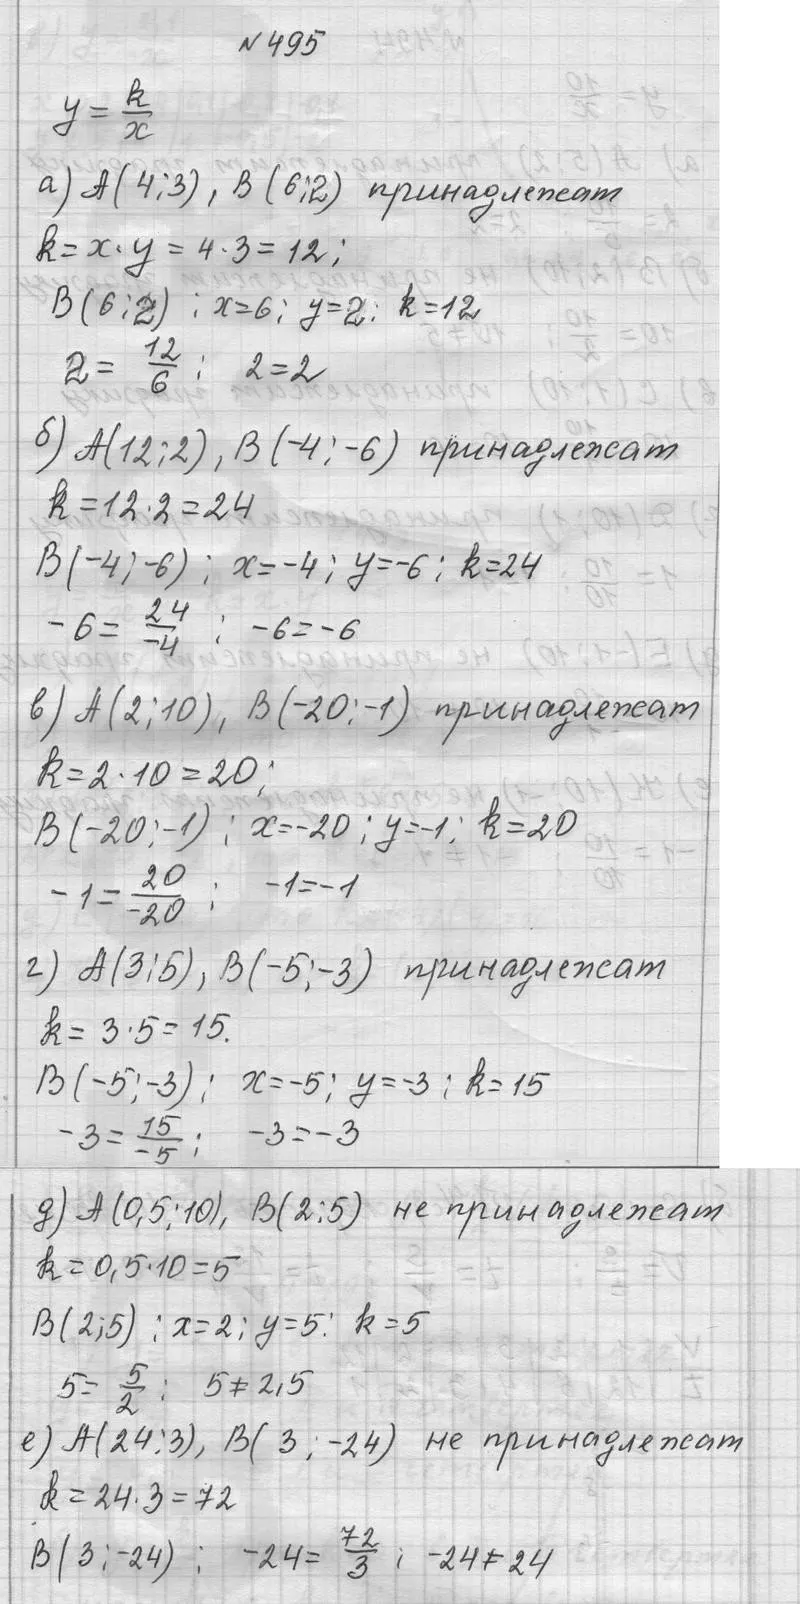 №495
y = k/x
а) A(4;3), B(6;2) принадлежат
k = x·y = 4·3 = 12;
B(6;2) ; x=6; y=2; k=12
2 = 12/6 ; 2=2
б) A(12;2), B(-4;-6) принадлежат
k = 12·2 = 24
B(-4;-6) ; x=-4; y=-6; k=24
-6 = 24/-4 ; -6=-6
в) A(2;10), B(-20;-1) принадлежат
k = 2·10 = 20;
B(-20;-1) ; x=-20; y=-1; k=20
-1 = 20/-20 ; -1=-1
г) A(3;5), B(-5;-3) принадлежат
k = 3·5 = 15.
B(-5;-3) ; x=-5; y=-3; k=15
-3 = 15/-5 ; -3=-3
д) A(0,5;10), B(2;5) не принадлежат
k = 0,5·10 = 5
B(2;5) ; x=2; y=5; k=5
5 = 5/2 ; 5≠2,5
е) A(24;3), B(3;-24) не принадлежат
k = 24·3 = 72
B(3;-24) ; -24 = 72/3 ; -24≠24